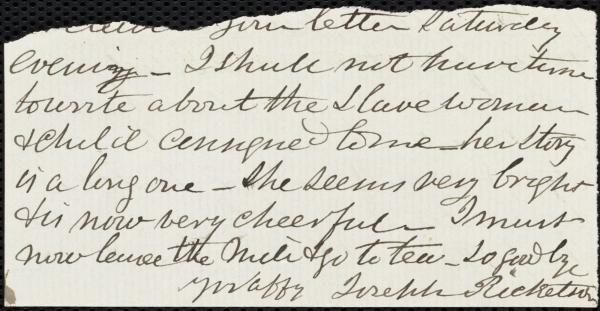 received your letter Saturday
evening – I shall not have time
to write about the slave woman
& child consigned to me – her story
is a long one – she seems very bright
& is now very cheerful – I must
now leave the & go to tea – so good bye
yrs affy Joseph Ricketson